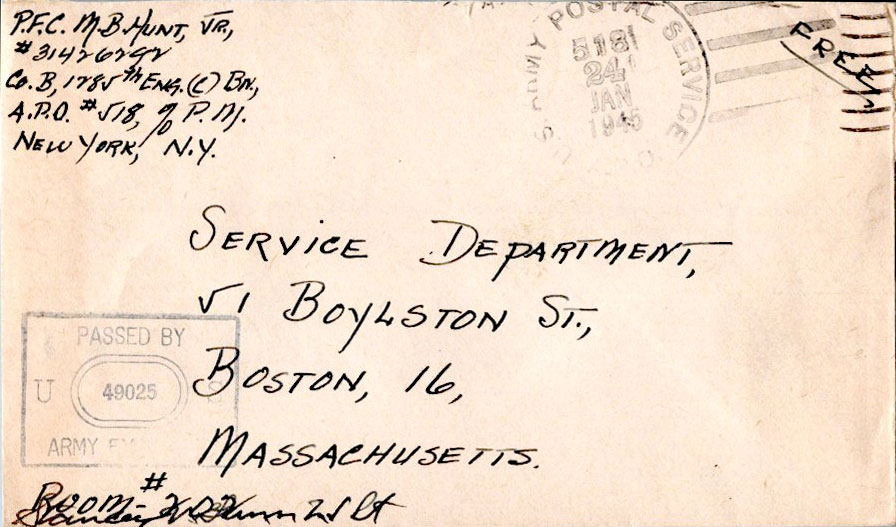 P.F.C. M.B. HUNT, JR.,
#31426292
Co. B, 1285th ENG. (C) BN.,
A.P.O. #518, % P.M.
NEW YORK, N.Y.
U.S. ARMY POSTAL SERVICE
518
24
JAN
1945
FREE
SERVICE DEPARTMENT,
51 BOYLSTON ST.,
BOSTON, 16,
MASSACHUSETTS.
PASSED BY
U 49025 S
ARMY
ROOM #